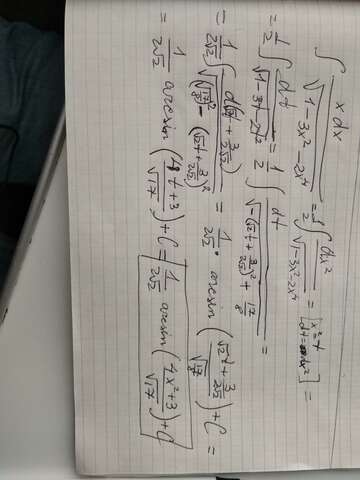 ∫ xdx / √(1-3x²-2x⁴) = 1/2 ∫ dx² / √(1-3x²-2x⁴) = [x²=t dt=dx²] =
= 1/2 ∫ dt / √(1-3t-2t²) = 1/2 ∫ dt / √(-(√2t + 3/(2√2))² + 17/8) =
= 1/(2√2) ∫ d(√2t + 3/(2√2)) / √(√(17/8)² - (√2t + 3/(2√2))²) = 1/(2√2) · arcsin ((√2t + 3/(2√2)) / √(17/8)) + C =
= 1/(2√2) arcsin ((4t+3)/√17) + C = 1/(2√2) arcsin ((4x²+3)/√17) + C